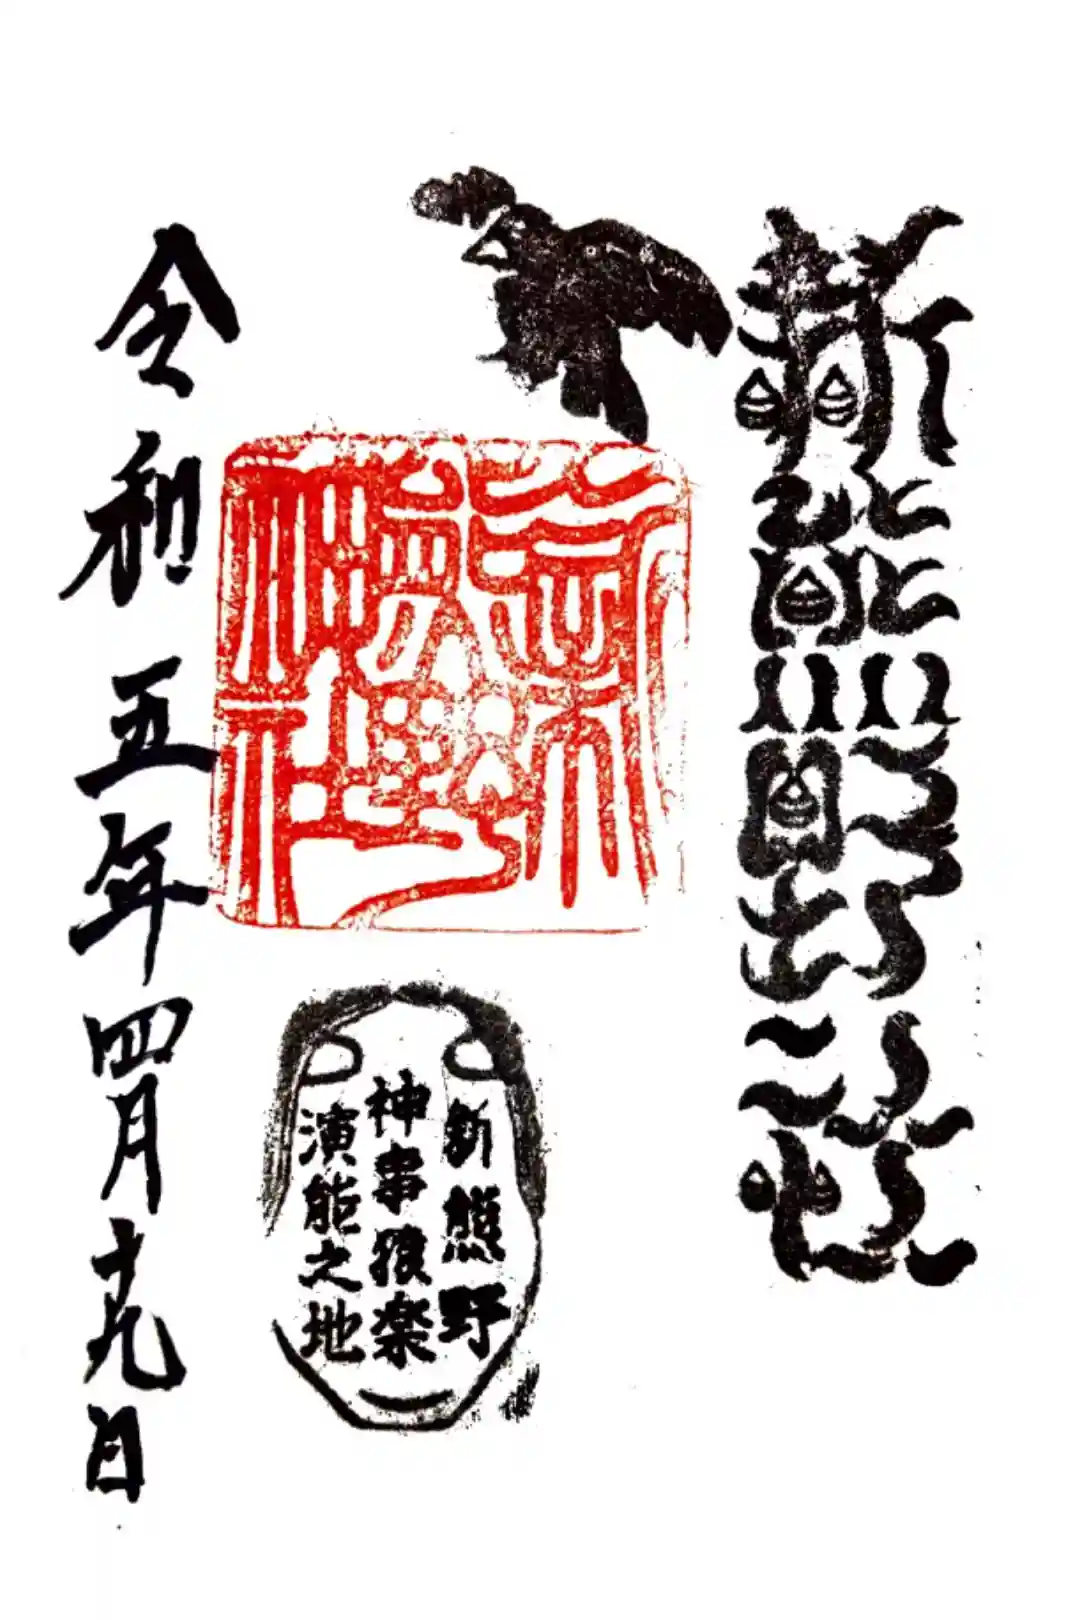 新熊野社
新熊野神社
新熊野
神事猿楽
演能之地
令和五年四月十九日